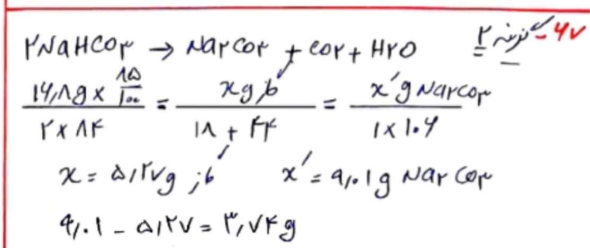 ۶۷- گزینه ۲
۲NaHCO۳ → Na۲CO۳ + CO۲ + H۲O
۱۶٫۸g × ۸۵/۱۰۰ / ۲×۸۴ = xg گاز / ۱۸ + ۴۴ = x′g Na۲CO۳ / ۱×۱۰۶
x = ۵٫۲۷g گاز x′ = ۹٫۰۱g Na۲CO۳
۹٫۰۱ - ۵٫۲۷ = ۳٫۷۴g